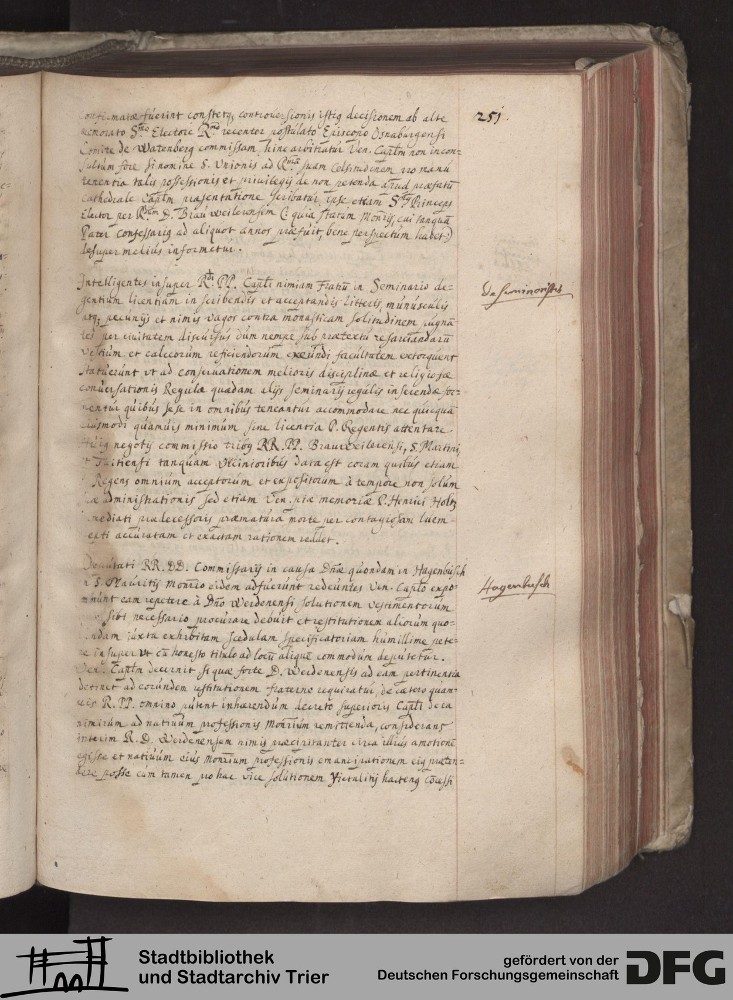 251.
confirmatæ fuerint constet, controversionis istiq decisionem ab alte
memorato S.mo Electore R.mo recenter postulato Episcopo Osnaburgensi
Comite de Wartenberg commissam, hinc arbitratur Ven. Cap̄lm non incon-
sultum fore si nomine S. Unionis ad R.mam suam Celsitudinem pro manu
tenentia talis possessionis et privilegij de non petenda apud præfatū
Cathedrale Cap̄lm præsentatione scribatur, ipse etiam S.mus Princeps
Elector per R.dum D. Brauweilerensem (: quia statum Monrij, cui tanquā
Pater Confessariq ad aliquot annos præfuit, bene perspectum habet:)
desuper melius informetur.
Intelligentes insuper R.di PP. Cap̄li nimiam Fratrū in Seminario de-
gentium licentiam in scribendis et acceptandis litteris, munusculis
atq, pecunijs et nimis vagos contra monasticam solitudinem pugnā
tes per civitatem discursus dum nempe sub prætextu resarciendarū
vestium et calceorum reficiendorum exeundi facultatem extorquent
statuerunt vt ad conservationem melioris disciplinæ et religiosæ
conversationis Regulæ quædam alijs seminarij regulis inserendæ for-
mentur quibus sese in omnibus teneantur accommodare nec quicquā
eiusmodi quamvis minimum sine licentia P. Regentis attentare.
Huiq negotij commissio tribq RR. PP. Brauweilerensi, S. Martini,
et Tuitiensi tanquam vicinioribus data est coram quibus etiam
P. Regens omnium acceptorum et expositorum à tempore non solùm
suæ administrationis sed etiam Ven. piæ memoriæ P. Henrici Holtz
immediati prædecessoris præmatura morte per contagiosam luem
accuratam et exactam rationem reddet.
De Seminaristis
Deputati RR. DD. Commissarij in causa Dnæ quondam in Hagenbusch
S. Mauritij Monrio eidem adfuerunt redeuntes Ven. Cap̄lo expo-
nunt eam repetere à Dno Werdenensi solutionem vestimentorum
sibi necessario procurare debuit et restitutionem aliorum quo-
rundam iuxta exhibitam scedulam specificatoriam humillime pete-
re insuper vt cū honesto titulo ad locū aliquē commodum deputetur.
Ven. Cap̄lm decernit si quæ forte D. Werdenensis ad eam pertinentia
detinet ad eorundem restitutionem fraterne requiratur, de cætero quam-
vis R. PP. omnino putent inhærendum decreto superioris Cap̄li de ea
nimirum ad nativum professionis Monrium remittenda, considerant
interim R. D. Werdenensem nimis præcipitanter circa illius amotionē
egisse et nativum eius Monrium professionis emancipationem eiq præten-
dere posse cum tamen pro hac vice solutionem victualitij hacteng cōcessi
Hagenbusch
Stadtbibliothek
und Stadtarchiv Trier
gefördert von der
Deutschen Forschungsgemeinschaft
DFG